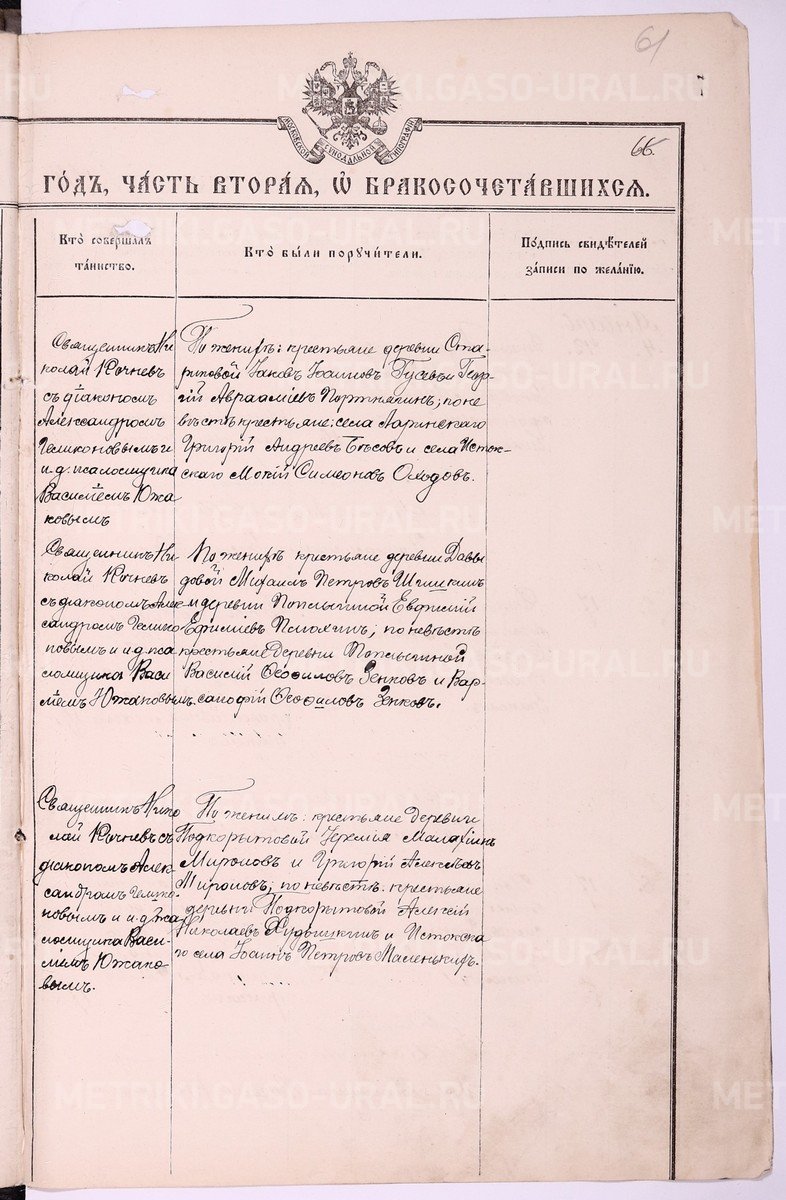 61
МОСКОВСКОЙ СѴНОДАЛЬНОЙ ТИПОГРАФІИ
66.
ГО́ДЪ, ЧА́СТЬ ВТОРА́Ѧ, Ѽ БРАКОСОЧЕТА́ВШИХСѦ.
Кто̀ соверша́лъ
та́инство.
Кто̀ бы́ли порꙋчи́тели.
По́дпись свидѣ́телей
за́писи по жела́нїю.
Священникъ Ни
колай Кочневъ
съ діакономъ
Александромъ
и
и. д. псаломщика
Василіемъ Южа
ковымъ
По женихѣ: крестьяне деревни
Іаковъ Іоанновъ Гусевъ и Геор-
гій Авраамiевъ Портнягинъ; по не
вѣстѣ крестьяне: села
Григорій Андреевъ и села Исток-
скаго Мокій Симеоновъ Оходовъ.
Священникъ Ни
колай Кочневъ
съ діакономъ Алек
сандромъ
новымъ и и. д. пса
ломщика Васи
ліемъ Южаковымъ.
По женихѣ крестьяне деревни Давы
довой Михаилъ Петровъ
и деревни Евфимій
Ефиміевъ; по невѣстѣ
крестьяне деревни
Василій Ѳеофиловъ Зенковъ и Вар-
санофій Ѳеофиловъ Зенковъ.
Священникъ Нико
лай Кочневъ съ
діакономъ Алек
сандромъ
новымъ и и. д. пса
ломщика Васи-
ліемъ Южако
вымъ.
По женихѣ: крестьяне деревни
Подкорытовой Іеремія Малахіинъ
Мироновъ и Григорій Алексѣевъ
Мироновъ; по невѣстѣ: крестьяне
деревни Подкорытовой Алексій
Николаевъ и Истокска
го села Іоаннъ Петровъ Маленькихъ.
METRIKI.GASO-URAL.RU